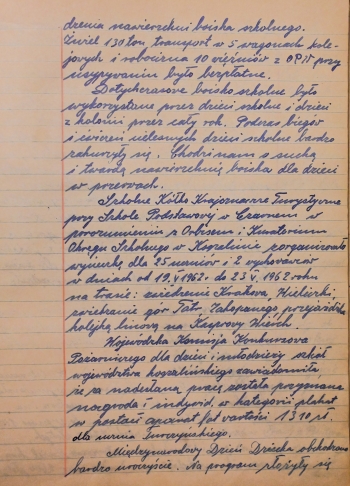 dzenia nawierzchni boiska szkolnego.
Żwiel 130 ton transport w 5 wagonach kole-
jowych i robocizna 10 więźniów z OPW przy
wysypywaniu było bezpłatne.
Dotychczasowe boisko szkolne było
wykorzystane przez dzieci szkolne i dzieci
z kolonii przez cały rok. Podczas biegów
i ćwiczeń cielesnych dzieci szkolne bardzo
zakurzyły się. Chodzi nam o suchą
i twardą nawierzchnię boiska dla dzieci
w przerwach.
Szkolne Kółko Krajoznawczo Turystyczne
przy Szkole Podstawowej w w
porozumieniu z Orbisem i Kuratorium
Okręgu Szkolnego w Koszalinie zorganizowało
wycieczkę dla 25 uczniów i 2 wychowawców
w dniach od 19.V.1962. do 23.V.1962 roku
na trasie: zwiedzenie Krakowa, Wieliczki,
zwiedzanie gór Tatr, Zakopanego przejażdżka
kolejką linową na Kasprowy Wierch.
Wojewódzka Komisja Konkursowa
Pożarniczego dla dzieci i młodzieży szkół
województwa koszalińskiego zawiadomiła
że za nadesłaną pracę została przyznana
nagroda I indywid. w kategorii plakat
w postaci aparat fot. wartości 1310 zł.
dla ucznia Turczyńskiego.
Międzynarodowy Dzień Dziecka obchodzono
bardzo uroczyście. Na program złożyły się